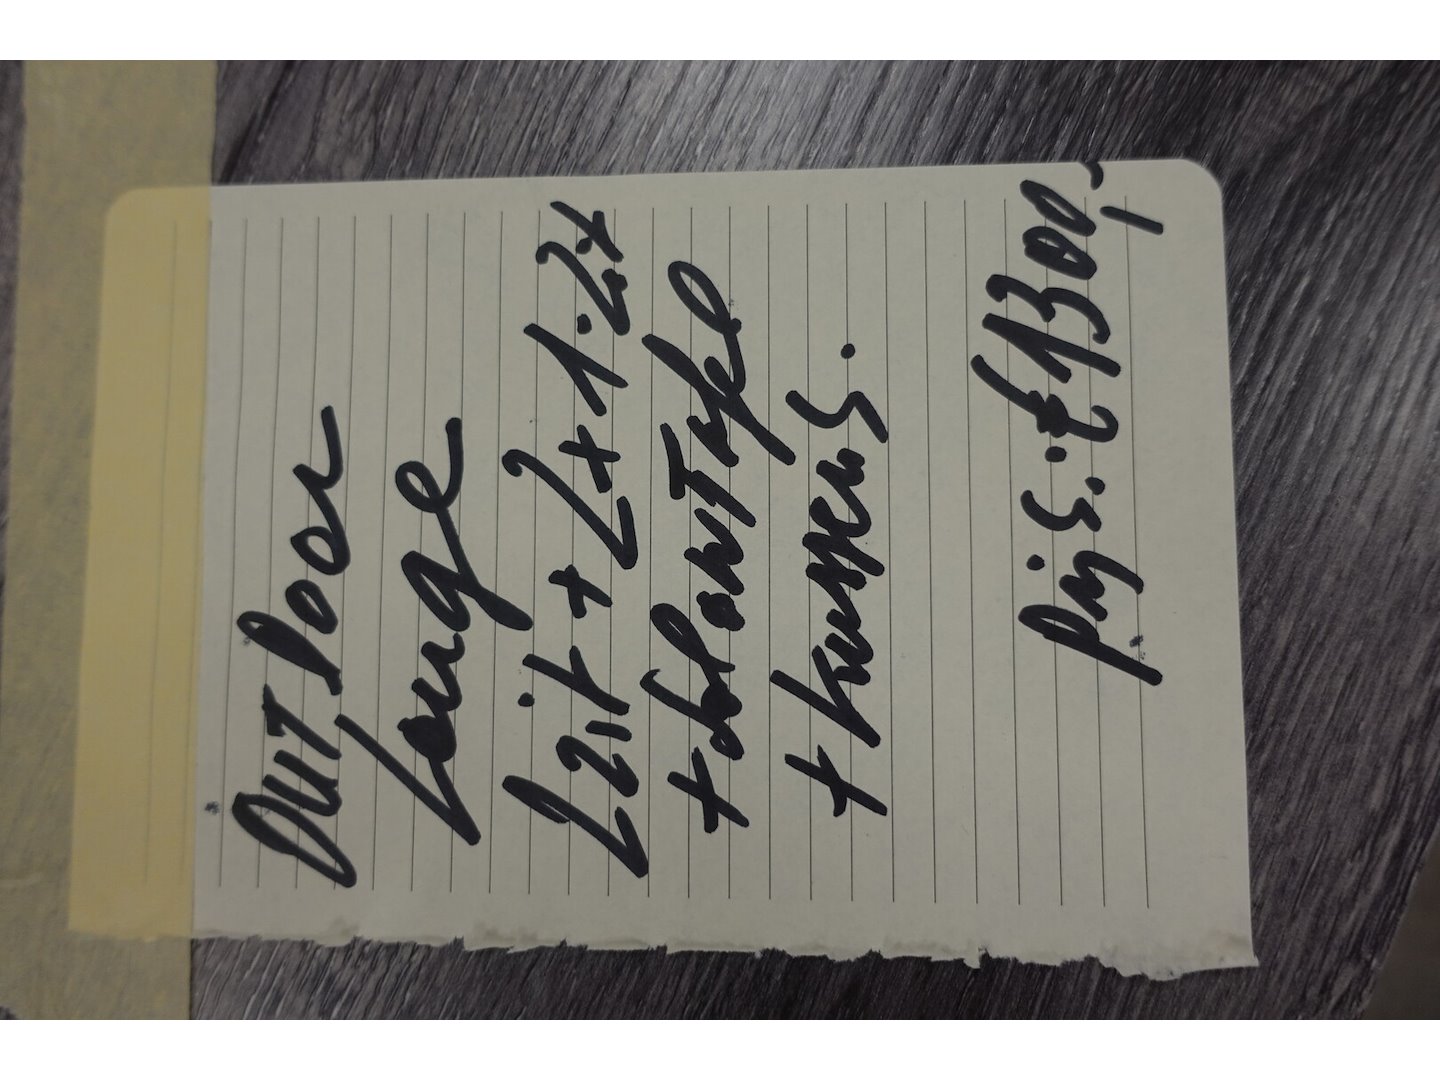 OUTDoor
Lounge
2 zit + 2x 1·zit
+ salonTafel
+ Kussens.
Prijs: € 1300,-